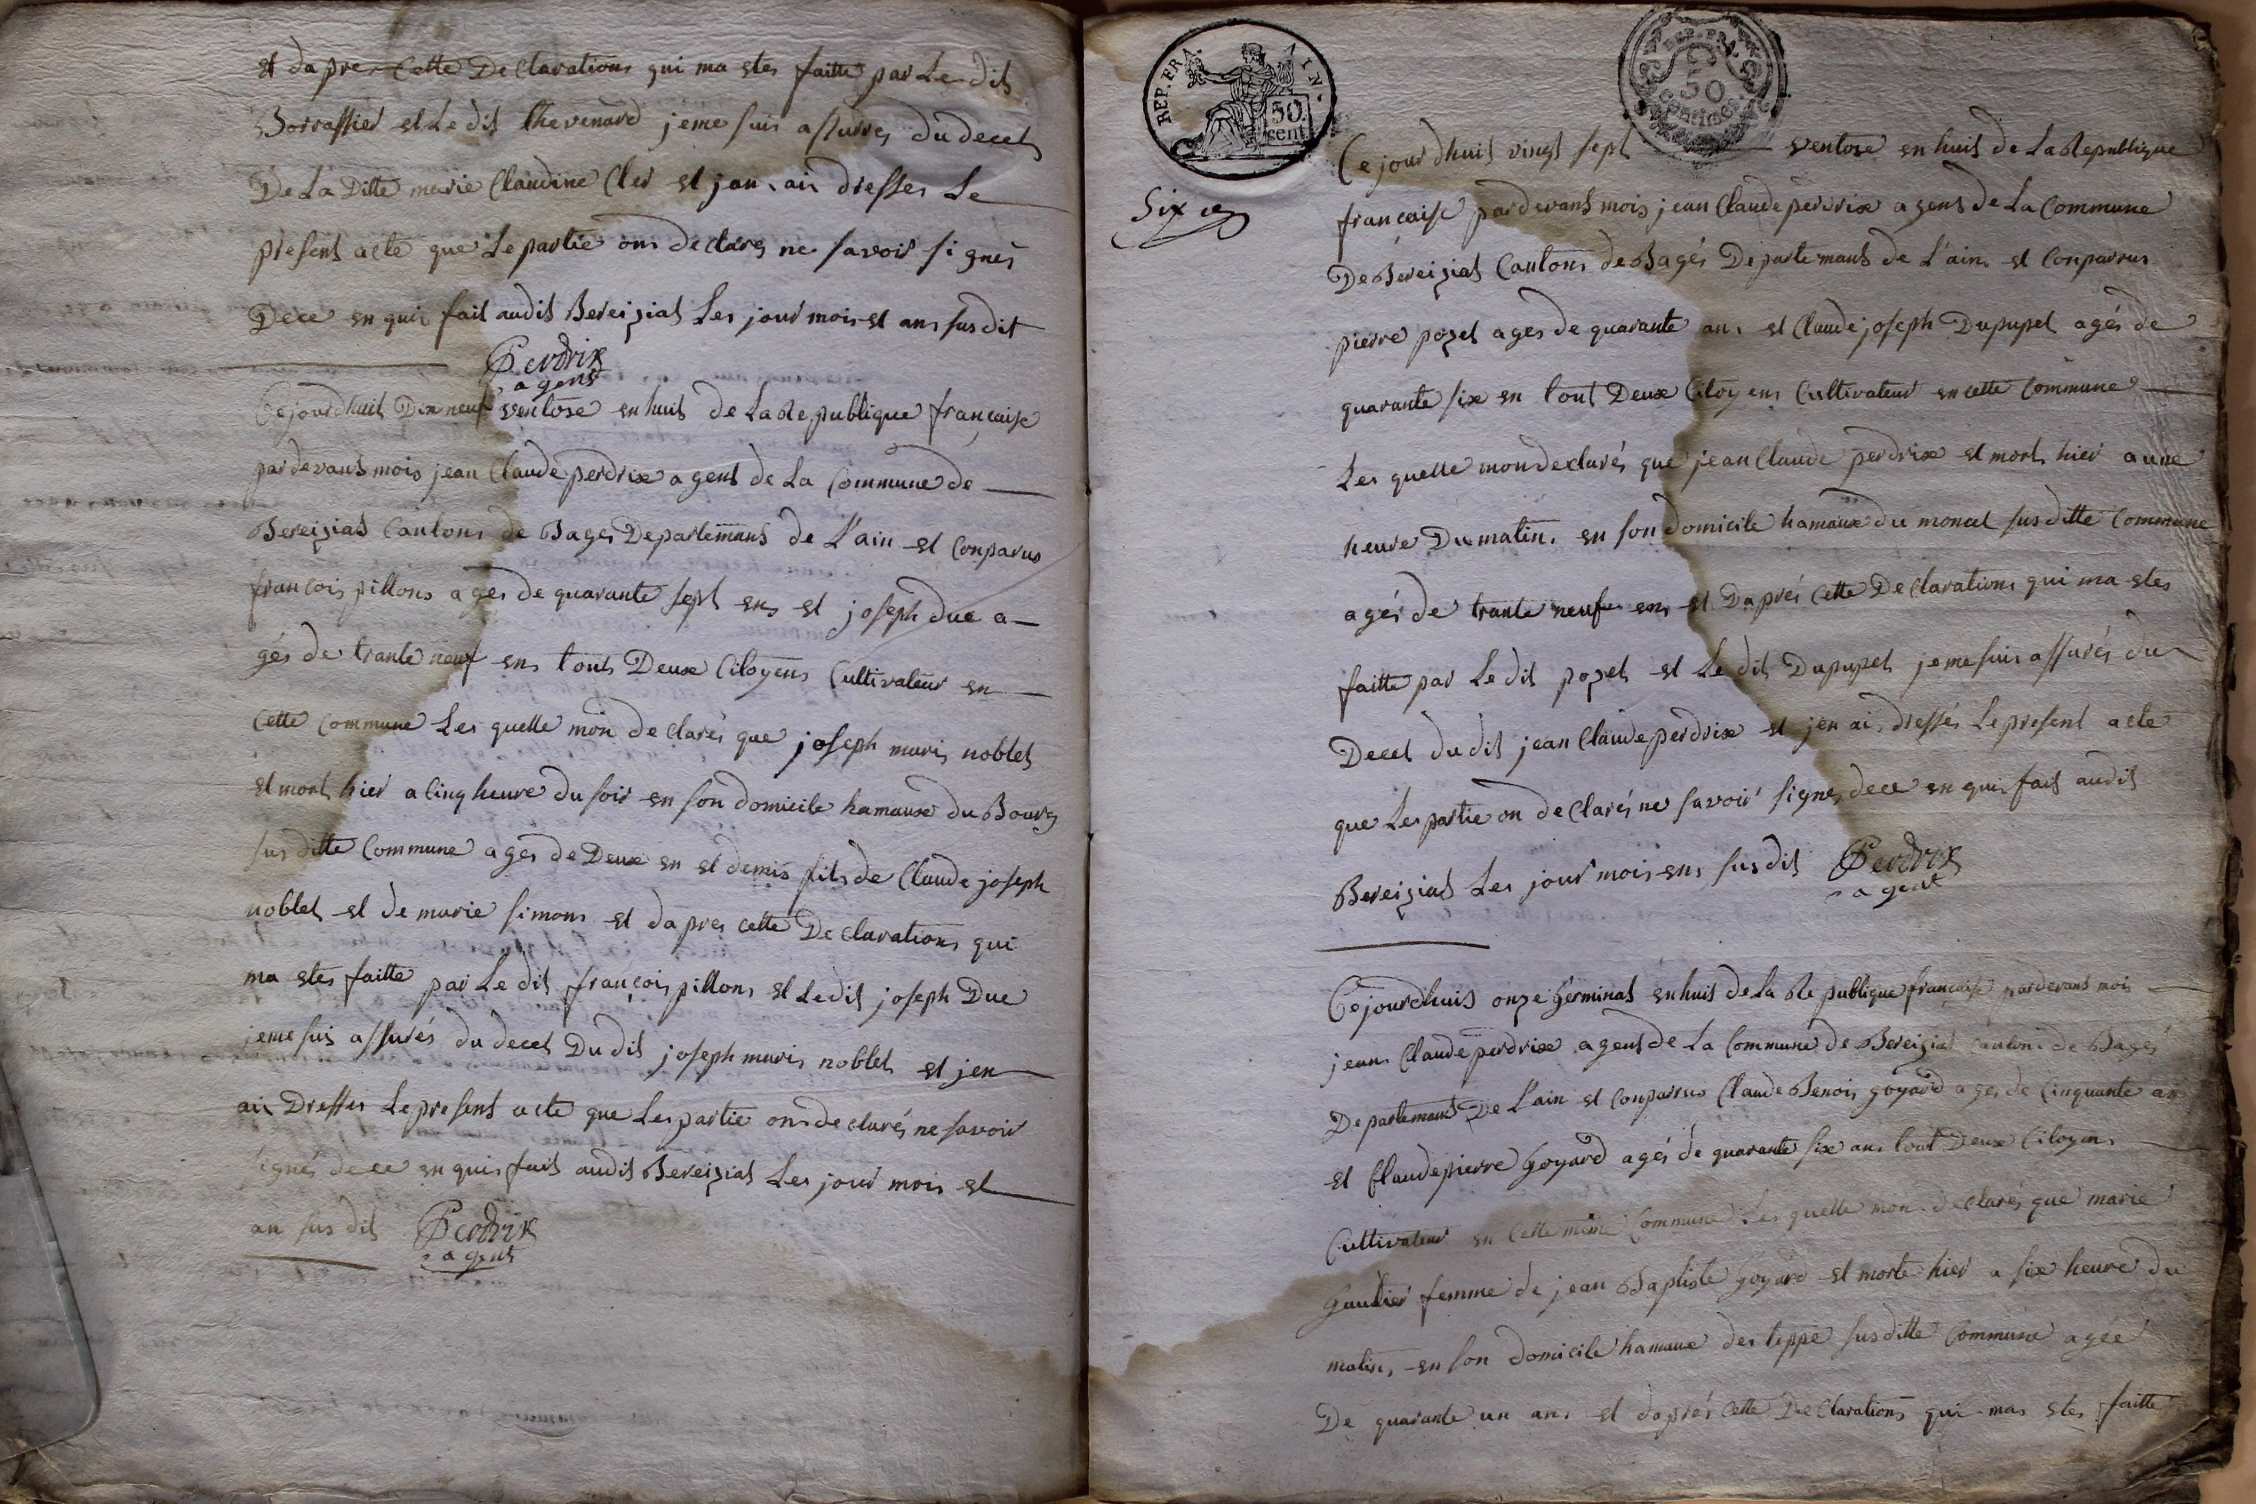 et dapres Cette De Clarations qui ma etes faitte par Le dit
Borrassier et Le dit thevenard jeme suis assures du decet
De La Ditte marie Claudine Cler et jan ai dresser Le
present acte que Le partie on declares ne savoir signés
Dece en quis fait audit Bereiziat Les jour mois et ans susdit
Perdrix
agent
Cejourdhuit Dix neuf ventose en huit de La Republique française
par devant mois jean Claude perdrix agent de La Commune de
Bereiziat Cantons de Bages Departemant de L'ain et Conparus
françois pillons ages de quarante sept ens et joseph duc a-
gés de trante neuf ens tout Deux Citoyens Cultivateur en
Cette Commune Les quelle mon declarés que joseph maris noblet
et mort hier a Cinq heure du soir en son domicile hamaux du Bourg
sus ditte Commune ages de Deux en et demis fils de Claude joseph
noblet et de marie simons et dapres Cette De Clarations qui
ma etes faitte par Le dit françois pillons et Ledit joseph Duc
jeme suis assurés du decet Du dit joseph maris noblet et jen
ais Dresser Le present acte que Les partie ons declarés ne savoir
signés dece en quis fait audit Bereiziat Les jour mois et
an sus dit Perdrix
agent
REP. FRA. IN.
50 cent
REP. FRA.
50
centimes
Six
Ce jourdhuit vingt sept ventose en huit de La Republique
française pardevant mois jean Claude perdrix agent de La Commune
De Bereiziat Cantons de Bagés Departemant de L'ain et Conparrus
pierre pozet ages de quarante ans et Claude joseph Dupupet agés de
quarante six en tout Deux Citoyens Cultivateur en cette Commune
Les quelle mon declarés que jean Claude perdrix et mort hier a une
heure Du matin en son domicile hamaux du moncel sus ditte Commune
agés de trante neuf ens et Daprés Cette De Clarations qui ma etes
faitte par Le dit pozet et Le dit Dupupet jeme suis assurés du
Decet du dit jean Claude perdrix et jen ai dressés Le present acte
que Les partie on declarés ne savoir signés dece en quis fait audit
Bereiziat Les jour mois ens susdit Perdrix
agent
Cejourdhuit onze Germinal en huit de La Republique française pardevant mois
jean Claude perdrix agent de La Commune de Bereiziat Cantons de Bagés
Departemant De L'ain et Conparrus Claude Benois goyard ages de Cinquante an
et Claudepierre Goyard agés de quarante six ans tout Deux Citoyens
Cultivateur en Cette mème Commune Les quelle mon declarés que marie
Gautier femme de jean Baptiste Goyard et morte hier a six heure du
matin en son domicile hamaux des teppe susditte Commune agée
De quarante un ans et daprés Cette De Clarations qui mas etes faitte